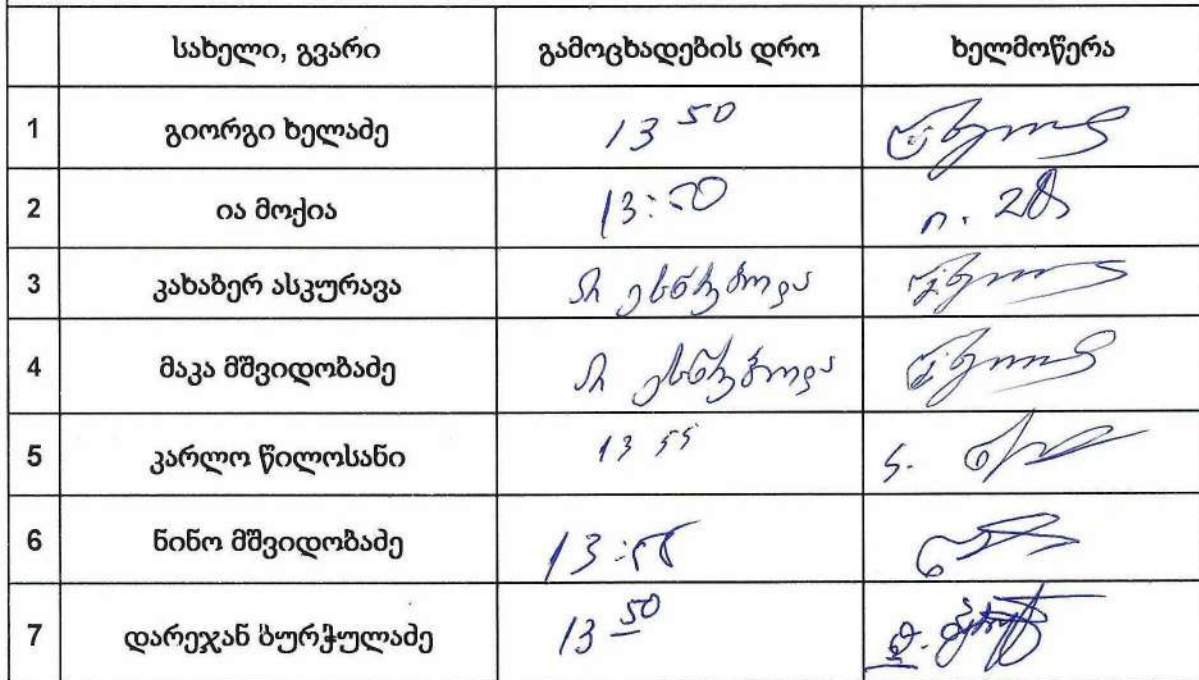 სახელი, გვარი გამოცხადების დრო ხელმოწერა
1 გიორგი ხელაძე 13 50
2 ია მოქია 13:50
3 კახაბერ ასკურავა არ ესწრებოდა
4 მაკა მშვიდობაძე არ ესწრებოდა
5 კარლო წილოსანი 13 55
6 ნინო მშვიდობაძე 13:55
7 დარეჯან ბურჭულაძე 13 50